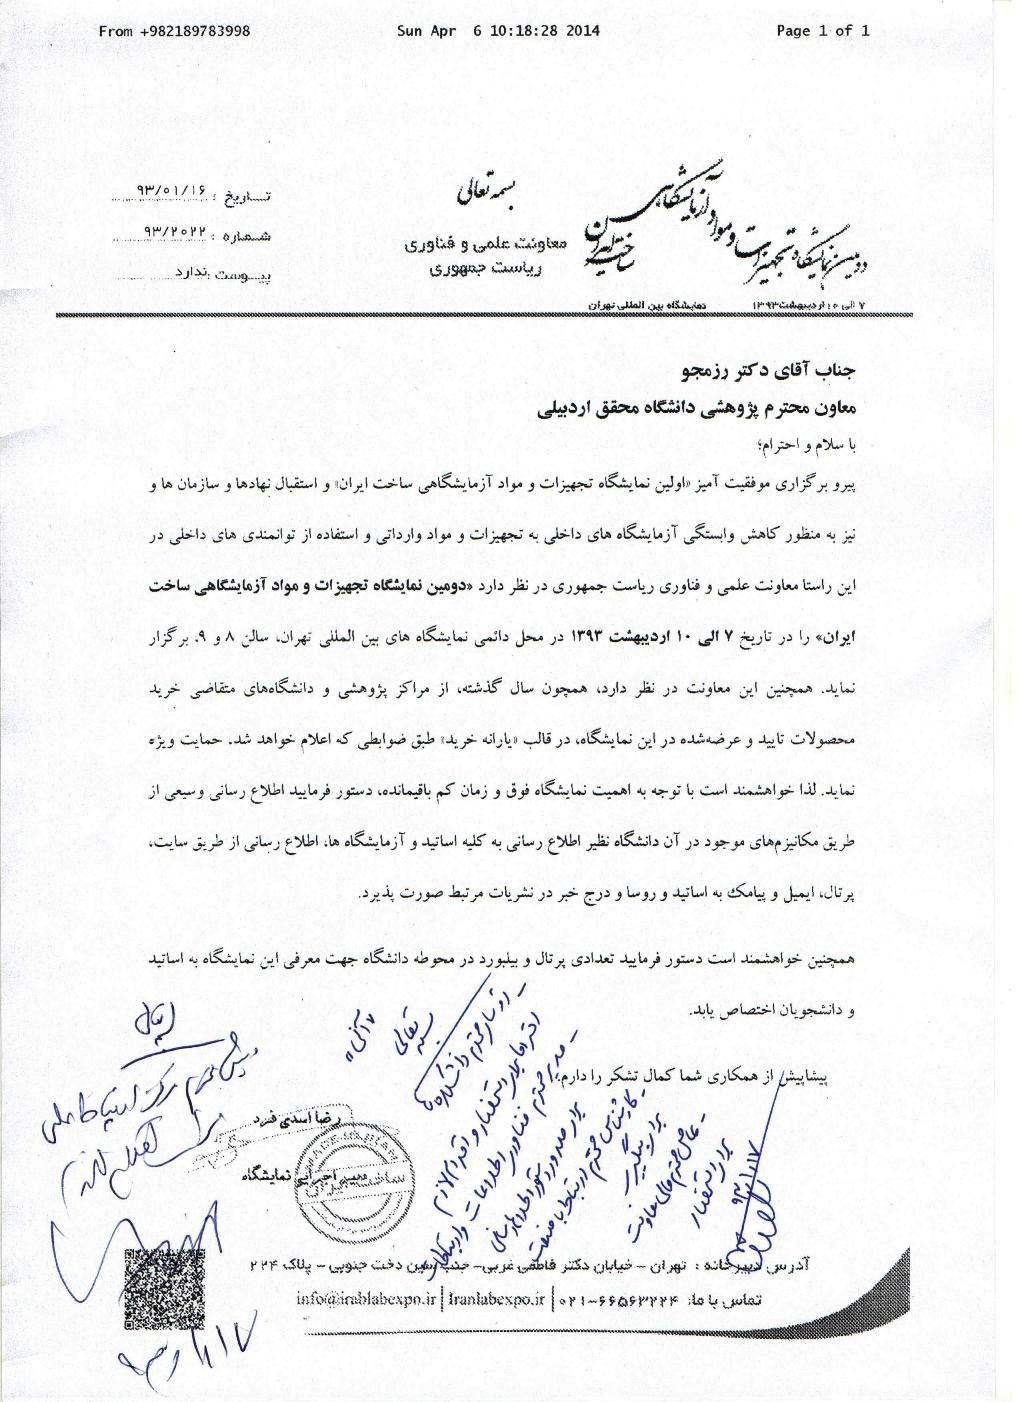 From +982189783998 Sun Apr 6 10:18:28 2014 Page 1 of 1
دومین نمایشگاه تجهیزات و مواد آزمایشگاهی
ساخت ایران
۷ الی ۱۰ اردیبهشت ۱۳۹۳ نمایشگاه بین المللی تهران
بسمه تعالی
معاونت علمی و فناوری
ریاست جمهوری
تاریخ : ۹۳/۰۱/۱۶
شماره : ۹۳/۲۰۲۲
پیوست :ندارد
جناب آقای دکتر رزمجو
معاون محترم پژوهشی دانشگاه محقق اردبیلی
با سلام و احترام؛
پیرو برگزاری موفقیت آمیز «اولین نمایشگاه تجهیزات و مواد آزمایشگاهی ساخت ایران» و استقبال نهادها و سازمان ها و
نیز به منظور کاهش وابستگی آزمایشگاه های داخلی به تجهیزات و مواد وارداتی و استفاده از توانمندی های داخلی در
این راستا معاونت علمی و فناوری ریاست جمهوری در نظر دارد «دومین نمایشگاه تجهیزات و مواد آزمایشگاهی ساخت
ایران» را در تاریخ ۷ الی ۱۰ اردیبهشت ۱۳۹۳ در محل دائمی نمایشگاه های بین المللی تهران، سالن ۸ و ۹، برگزار
نماید. همچنین این معاونت در نظر دارد، همچون سال گذشته، از مراکز پژوهشی و دانشگاه‌های متقاضی خرید
محصولات تایید و عرضه‌شده در این نمایشگاه، در قالب «یارانه خرید» طبق ضوابطی که اعلام خواهد شد، حمایت ویژه
نماید. لذا خواهشمند است با توجه به اهمیت نمایشگاه فوق و زمان کم باقیمانده، دستور فرمایید اطلاع رسانی وسیعی از
طریق مکانیزم‌های موجود در آن دانشگاه نظیر اطلاع رسانی به کلیه اساتید و آزمایشگاه ها، اطلاع رسانی از طریق سایت،
پرتال، ایمیل و پیامک به اساتید و روسا و درج خبر در نشریات مرتبط صورت پذیرد.
همچنین خواهشمند است دستور فرمایید تعدادی پرتال و بیلبورد در محوطه دانشگاه جهت معرفی این نمایشگاه به اساتید
و دانشجویان اختصاص یابد.
پیشاپیش از همکاری شما کمال تشکر را دارم.
رضا اسدی فرد
دبیر اجرایی نمایشگاه
MADE IN IRAN
ساخت ایران
بسمه تعالی
«آنی»
- روسای محترم دانشکده
- مدیر محترم فناوری اطلاعات و ارتباطات
برای صدور دستور اطلاع رسانی
- کارشناس محترم ارتباط با صنعت
برای پیگیری
برای استحضار
۹۳/۱/۱۷
۹۳/۱/۱۷
آدرس دبیرخانه : تهران – خیابان دکتر فاطمی غربی- جنب سین دخت جنوبی – پلاک ۲۲۴
تماس با ما: ۰۲۱-۶۶۵۶۳۲۲۴ | Iranlabexpo.ir | info@irablabexpo.ir